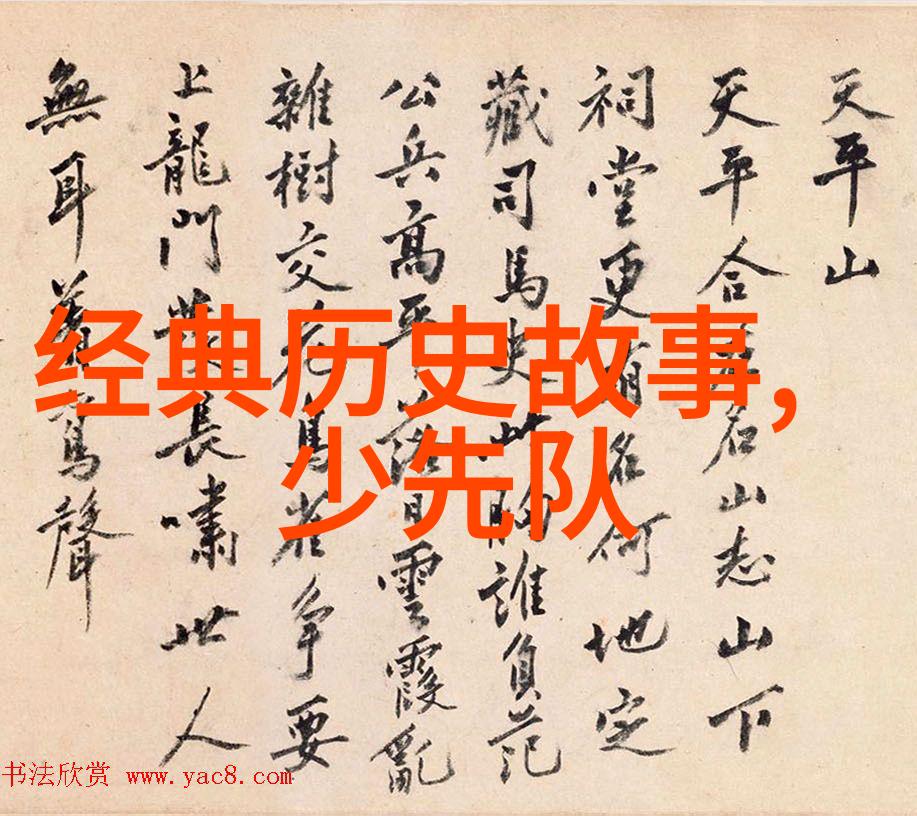 天平山
天平合名山志山下
祠堂更有名何地定
藏司馬史此胸誰負范
公兵高平落日雲霞亂
雜樹交花鳥雀争要
上龍門發長嘯世人
無耳聲
经典历史故事,
少先队
书法欣赏 www.yac8.com